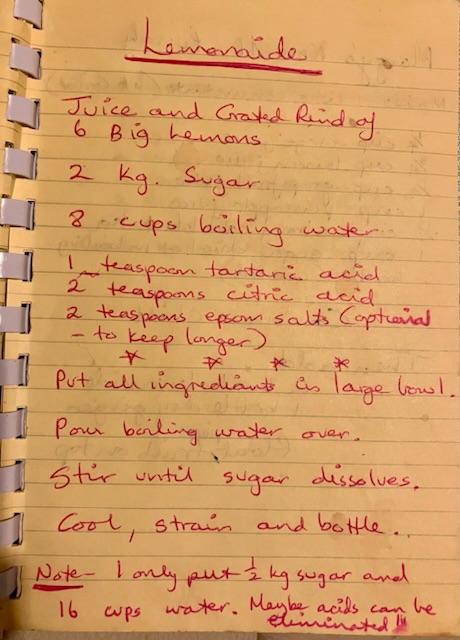 Lemonaide
Juice and Grated Rind of
6 Big Lemons
2 Kg. Sugar
8 cups boiling water
1 teaspoon tartaric acid
2 teaspoons citric acid
2 teaspoons epsom salts (optional
- to keep longer)
Put all ingrediants in large bowl.
Pour boiling water over.
Stir until sugar dissolves.
Cool, strain and bottle..
Note - I only put ½ kg sugar and
16 cups water. Maybe acids can be
eliminated!!!